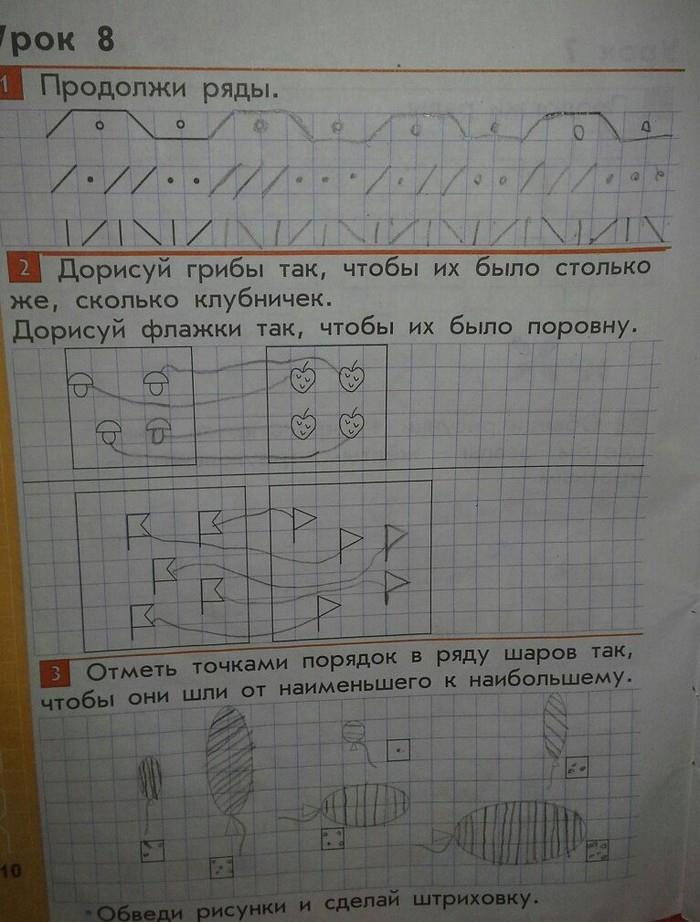 Урок 8
1 Продолжи ряды.
2 Дорисуй грибы так, чтобы их было столько
же, сколько клубничек.
Дорисуй флажки так, чтобы их было поровну.
3 Отметь точками порядок в ряду шаров так,
чтобы они шли от наименьшего к наибольшему.
10
Обведи рисунки и сделай штриховку.